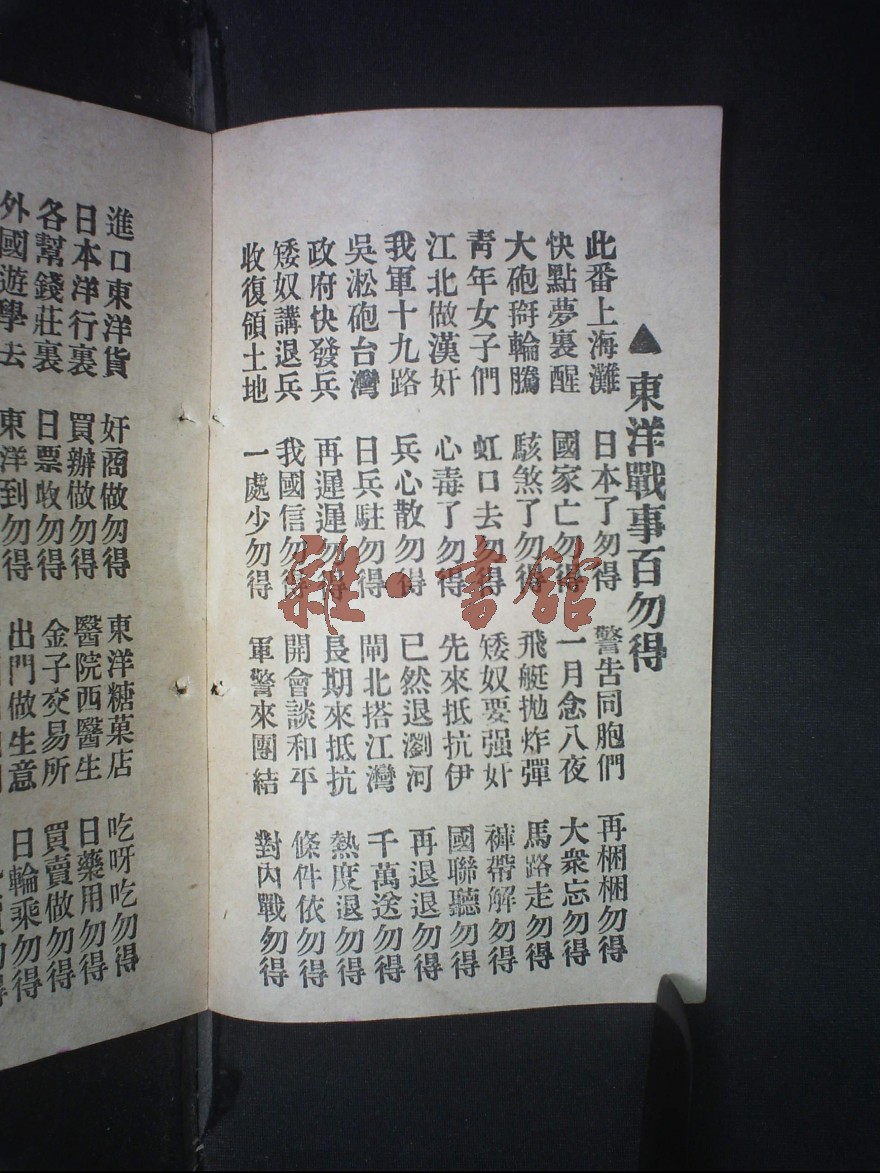 ▲東洋戰事百勿得
此番上海灘 日本了勿得 警告同胞們 再梱梱勿得
快點夢裏醒 國家亡勿得 一月念八夜 大衆忘勿得
大砲搿輪騰 駭煞了勿得 飛艇拋炸彈 馬路走勿得
青年女子們 虹口去勿得 矮奴要强奸 褲帶解勿得
江北做漢奸 心毒了勿得 先來抵抗伊 國聯聽勿得
我軍十九路 兵心散勿得 已然退瀏河 再退退勿得
吳淞砲台灣 日兵駐勿得 閘北搭江灣 千萬送勿得
政府快發兵 再遲遲勿得 長期來抵抗 熱度退勿得
矮奴講退兵 我國信勿得 開會談和平 條件依勿得
收復領土地 一處少勿得 軍警來團結 對內戰勿得
進口東洋貨 奸商做勿得 東洋糖菓店 吃呀吃勿得
日本洋行裏 買辦做勿得 醫院西醫生 日藥用勿得
各幫錢莊裏 日票收勿得 金子交易所 買賣做勿得
外國遊學去 東洋到勿得 出門做生意 日輪乘勿得
雜·書館